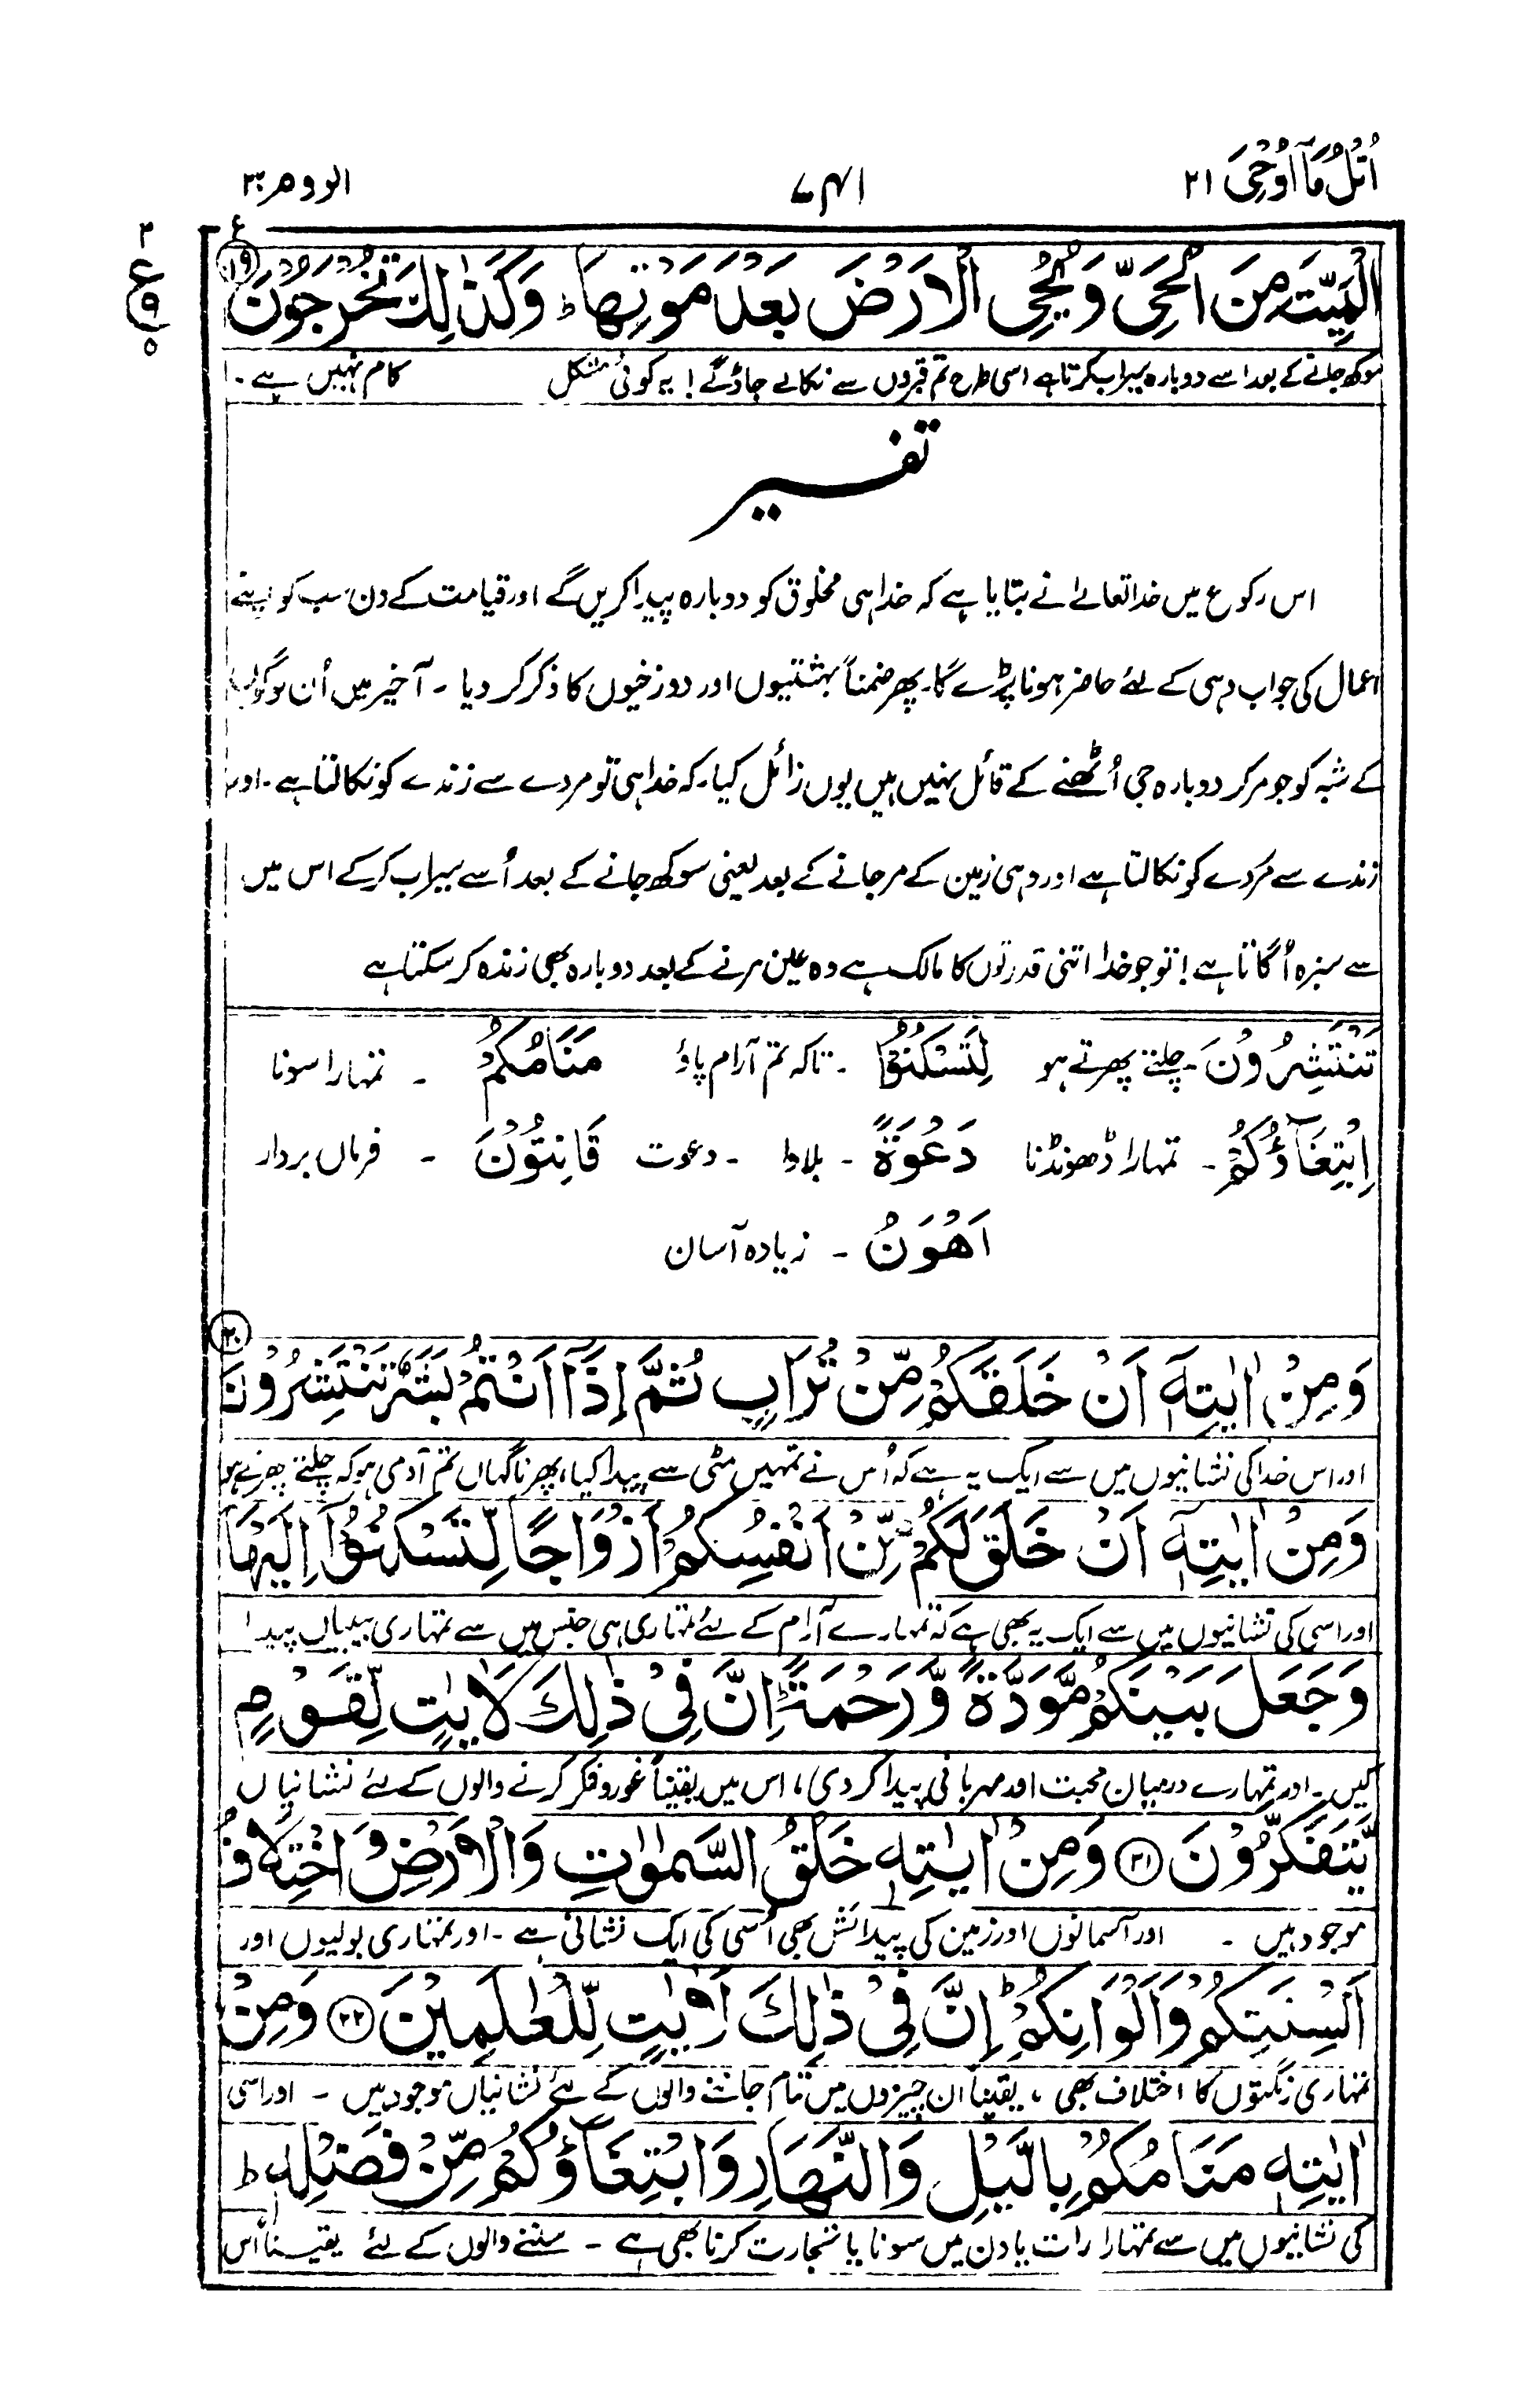 اُتْلُ مَآ اُوْحِیَ ۲۱
الروم ۳۰
۳
ع
۹
۵
الْمَیِّتَ مِنَ الْحَیِّ وَیُحْیِ الْاَرْضَ بَعْدَ مَوْتِهَا ؕ وَکَذٰلِكَ تُخْرَجُوْنَ ۱۹ ع
سوکھ جانے کے بعد اسے دوبارہ سیراب کرتا ہے اسی طرح تم قبروں سے نکالے جاؤ گے! یہ کوئی مشکل کام نہیں ہے۔
تفسیر
اس رکوع میں خدا تعالےٰ نے بتایا ہے کہ خدا ہی مخلوق کو دوبارہ پیدا کریں گے اور قیامت کے دن سب کو اپنے
اعمال کی جواب دہی کے لئے حاضر ہونا پڑے گا۔ پھر ضمناً بہشتیوں اور دوزخیوں کا ذکر کر دیا ۔ آخیر میں اُن لوگوں
کے شبہ کو جو مر کر دوبارہ جی اُٹھنے کے قائل نہیں ہیں یوں زائل کیا۔ کہ خدا ہی تو مردے سے زندے کو نکالتا ہے ۔ اور
زندے سے مُردے کو نکالتا ہے اور وہی زمین کے مر جانے کے بعد یعنی سوکھ جانے کے بعد اُسے سیراب کر کے اس میں
سے سبزہ اُگاتا ہے! تو جو خدا اتنی قدرتوں کا مالک ہے وہ عین مرنے کے بعد دوبارہ بھی زندہ کر سکتا ہے
تَنْتَشِرُوْنَ ۔ چلتے پھرتے ہو لِتَسْکُنُوْٓا ۔ تاکہ تم آرام پاؤ مَنَامُکُمْ ۔ تمہارا سونا
اِبْتِغَآؤُکُمْ ۔ تمہارا ڈھونڈنا دَعْوَةً ۔ بلاوا ۔ دعوت قَانِتُوْنَ ۔ فرماں بردار
اَهْوَنُ ۔ زیادہ آسان
وَمِنْ اٰیٰتِهٖٓ اَنْ خَلَقَکُمْ مِّنْ تُرَابٍ ثُمَّ اِذَآ اَنْتُمْ بَشَرٌ تَنْتَشِرُوْنَ ۲۰
اور اس خدا کی نشانیوں میں سے ایک یہ ہے کہ اُس نے تمہیں مٹی سے پیدا کیا، پھر ناگہاں تم آدمی ہو کہ چلتے پھرتے ہو
وَمِنْ اٰیٰتِهٖٓ اَنْ خَلَقَ لَکُمْ مِّنْ اَنْفُسِکُمْ اَزْوَاجًا لِّتَسْکُنُوْٓا اِلَیْهَا
اور اسی کی نشانیوں میں سے ایک یہ بھی ہے کہ تمہارے آرام کے لئے تمہاری ہی جنس میں سے تمہاری بیبیاں پیدا
وَجَعَلَ بَیْنَکُمْ مَّوَدَّةً وَّرَحْمَةً ؕ اِنَّ فِیْ ذٰلِكَ لَاٰیٰتٍ لِّقَوْمٍ
کیں ۔ اور تمہارے درمیان محبت اور مہربانی پیدا کر دی، اس میں یقیناً غور و فکر کرنے والوں کے لئے نشانیاں
یَّتَفَکَّرُوْنَ ۲۱ وَمِنْ اٰیٰتِهٖ خَلْقُ السَّمٰوٰتِ وَالْاَرْضِ وَاخْتِلَافُ
موجود ہیں ۔ اور آسمانوں اور زمین کی پیدائش بھی اُسی کی ایک نشانی ہے ۔ اور تمہاری بولیوں اور
اَلْسِنَتِکُمْ وَاَلْوَانِکُمْ ؕ اِنَّ فِیْ ذٰلِكَ لَاٰیٰتٍ لِّلْعٰلِمِیْنَ ۲۲ وَمِنْ
تمہاری رنگتوں کا اختلاف بھی، یقیناً ان چیزوں میں تمام جاننے والوں کے لئے نشانیاں موجود ہیں ۔ اور اسی
اٰیٰتِهٖ مَنَامُکُمْ بِالَّیْلِ وَالنَّهَارِ وَابْتِغَآؤُکُمْ مِّنْ فَضْلِهٖ ؕ
کی نشانیوں میں سے تمہارا رات یا دن میں سونا یا تجارت کرنا بھی ہے ۔ سننے والوں کے لئے یقیناً اس